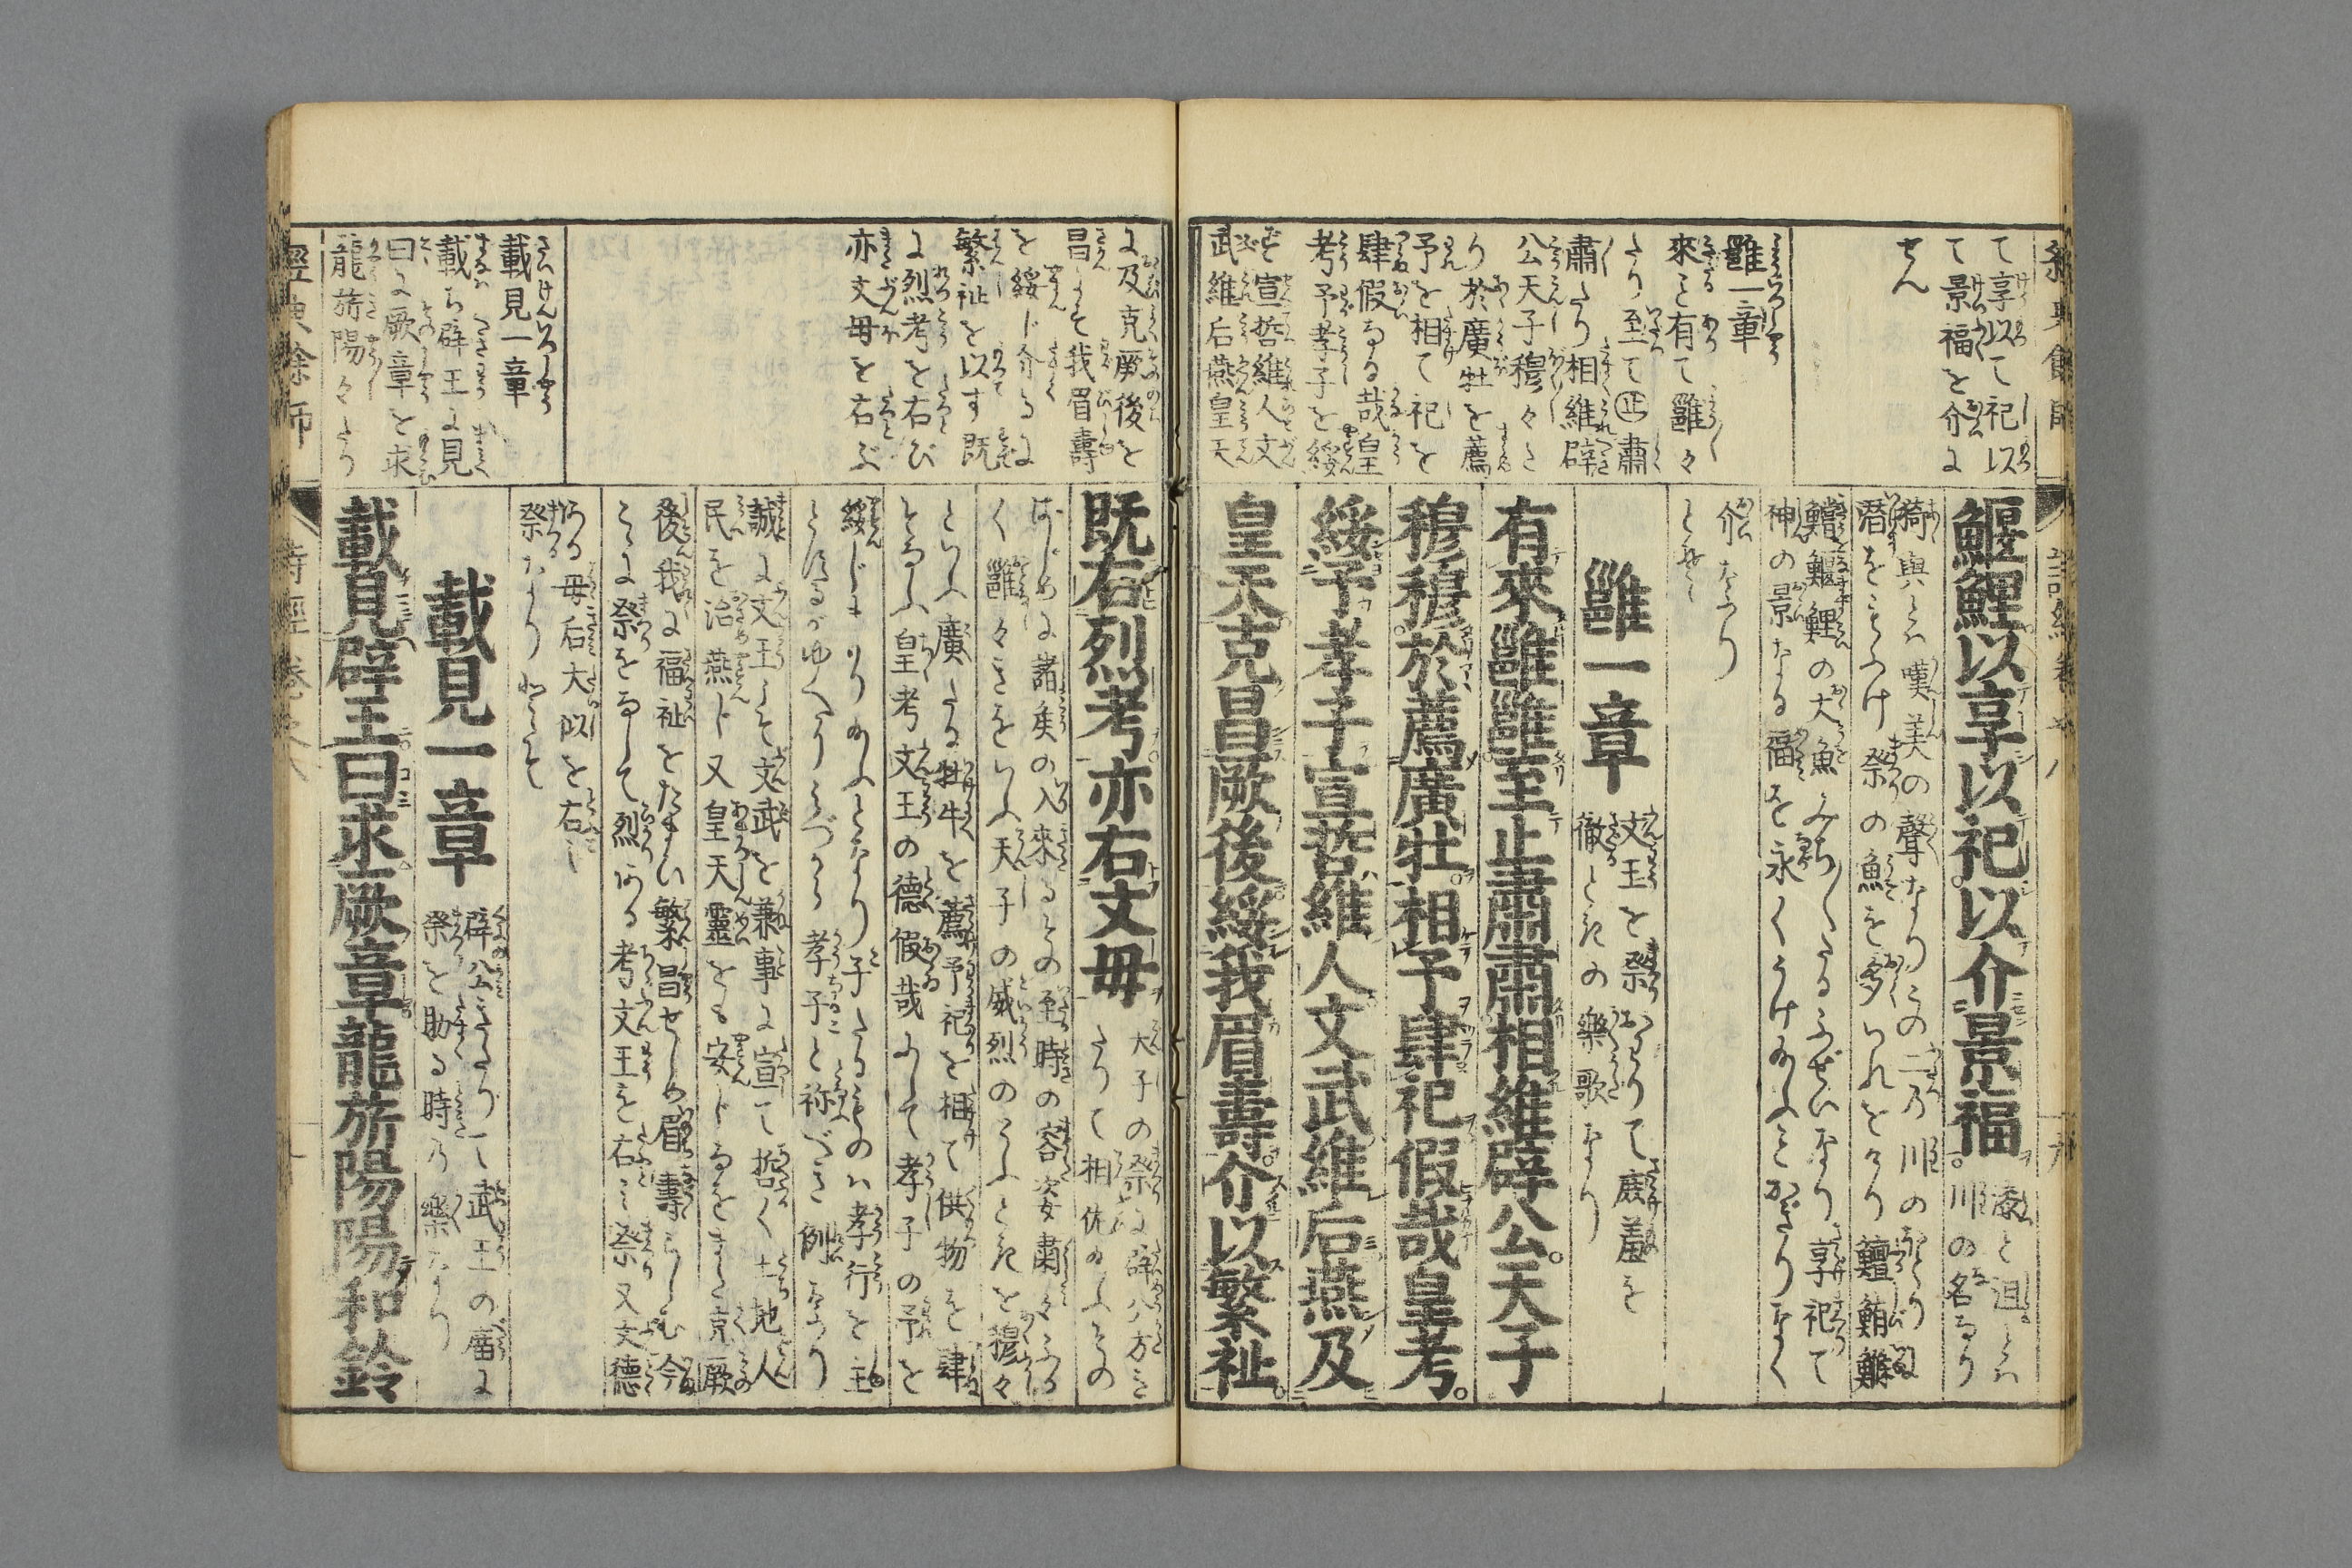 て享以て祀以
て景福を介に
せん
雝一章
來こと有て雝々
たり至て止肅
肅たり相維辟
公天子穆々た
り於廣牡を薦
予を相て祀を
肆假なる哉皇
考予孝子を綏
ず宣哲維人文
武維后燕皇天
鰋鯉以享以祀以介景福
漆と沮とは
川の名なり
猗與とは嘆美の聲なりこの二乃川の
潜をもふけ祭の魚を多くいれをけり鱣鮪鰷
鱨鰋鯉の大魚みち〳〵たるふぜいなり享祀て
神の景なる福を永くうけ
介なり
とぞ
雝一章
文王を祭おはりて廢羞を
徹ときの樂歌なり
有來雝雝至止肅肅相維辟公天子
穆穆於薦廣牡相予肆祀假哉皇考
綏予孝子宣哲維人文武維后燕及
皇天克昌厥後綏我眉壽介以繁祉
に及克厥後を
昌にして我眉壽
を綏じ介るに
繁祉を以す既
に烈考を右ひ
亦文母を右ぶ
載見一章
載ち辟王に見
曰に厥章を求
龍旂陽々たり
既右烈考亦右文母
大子の祭に辟公方き
たりて相佐のふその
はじめは諸矦の入來るその至時の容姿肅々ふか
く雝々きをいふ天子の威烈のふときを穆々
といふ廣たる牡牛を薦予祀を相て供物を肆
となふ皇考文王の德假哉よして孝子の予を
綏じ
子たるものは孝行を主
とするがゆへなりみづから孝子と祢べき例なり
誠に文王もそ文武を兼事に宣て哲く土地人
民を治燕じ又皇天靈をも安じるをまた克厥
後我に福祉をたまい繁昌せしめ眉壽らしむ今
こゝに祭をなして烈ある考文王を右み祭又文德
ある母后大姒を右に
祭なり
載見一章
辟公きたりて武王の廟に
祭を助る時乃樂なり
載見辟王曰求厥章龍旂陽陽和鈴
經典餘師
詩經卷之八